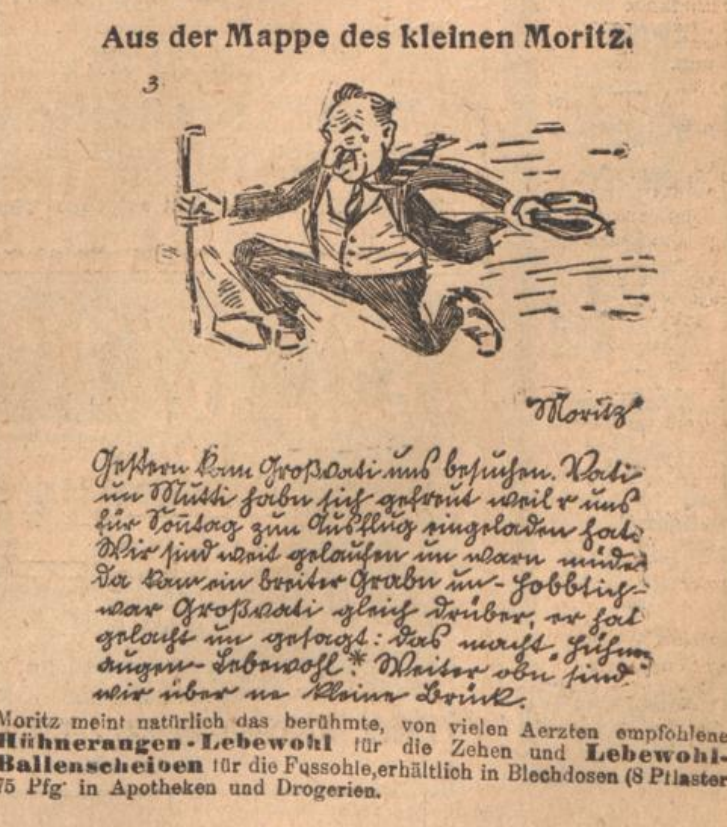 Aus der Mappe des kleinen Moritz.
3
Moritz
Gestern kam Großvati uns besuchen. Vati
un Mutti habn sich gefreut weil r uns
für Sonntag zun Ausflug eingeladen hat.
Wir sind weit gelaufen un warn müde
da kam ein breiter Grabn un - hobbtich -
war Großvati gleich drüber, er hat
gelacht un gesagt: das macht „Hühner
augen-Lebewohl"* Weiter obn sind
wir über ne kleine Brück.
Moritz meint natürlich das berühmte, von vielen Aerzten empfohlene
Hühneraugen-Lebewohl für die Zehen und Lebewohl-
Ballenscheiben für die Fussohle, erhältlich in Blechdosen (8 Pflaster
75 Pfg in Apotheken und Drogerien.